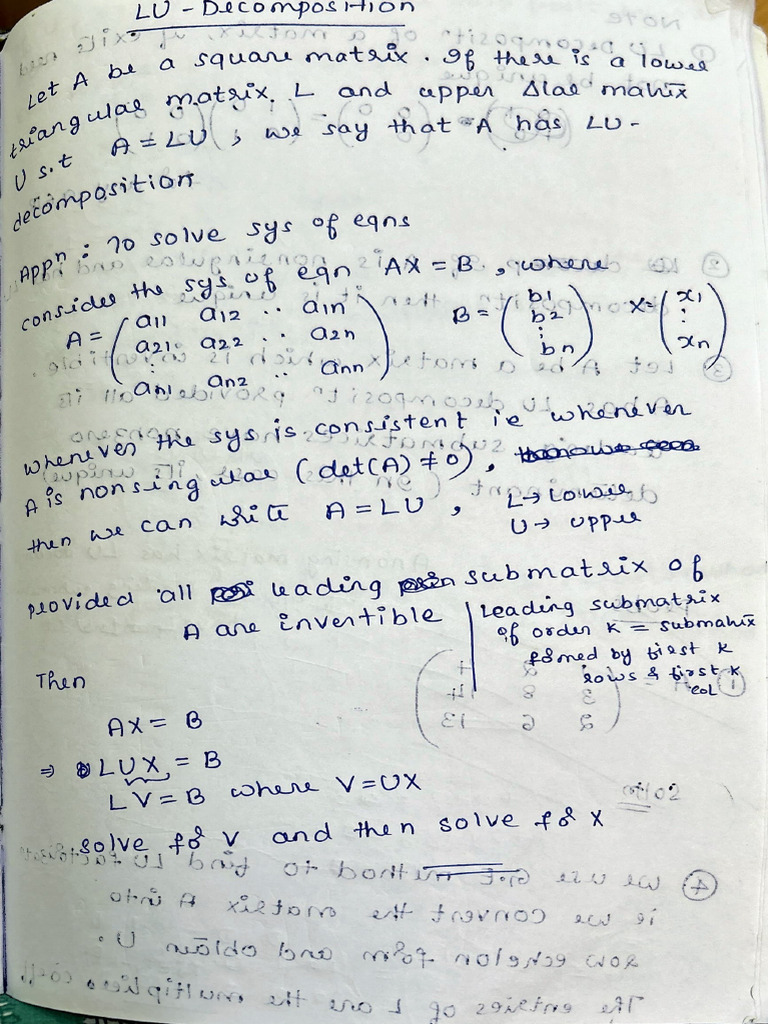 LU - Decomposition
Let A be a square matrix. If there is a lower
triangular matrix L and upper Δlar matrix
U s.t A = LU, we say that A has LU-
decomposition
Appⁿ: To solve sys of eqns
consider the sys of eqn AX = B, where
A = (a11 a12 .. a1n B = (b1 X = (x1
a21 a22 .. a2n b2 :
: : xn)
an1 an2 .. ann) bn)
whenever the sys is consistent ie whenever
A is nonsingular (det(A) ≠ 0),
then we can write A = LU, L → Lower
U → upper
provided all leading submatrix of
A are invertible
Leading submatrix
of order k = submatrix
formed by first k
rows & first k
col
Then
AX = B
⇒ LUX = B
LV = B where V = UX
solve for V and then solve for X